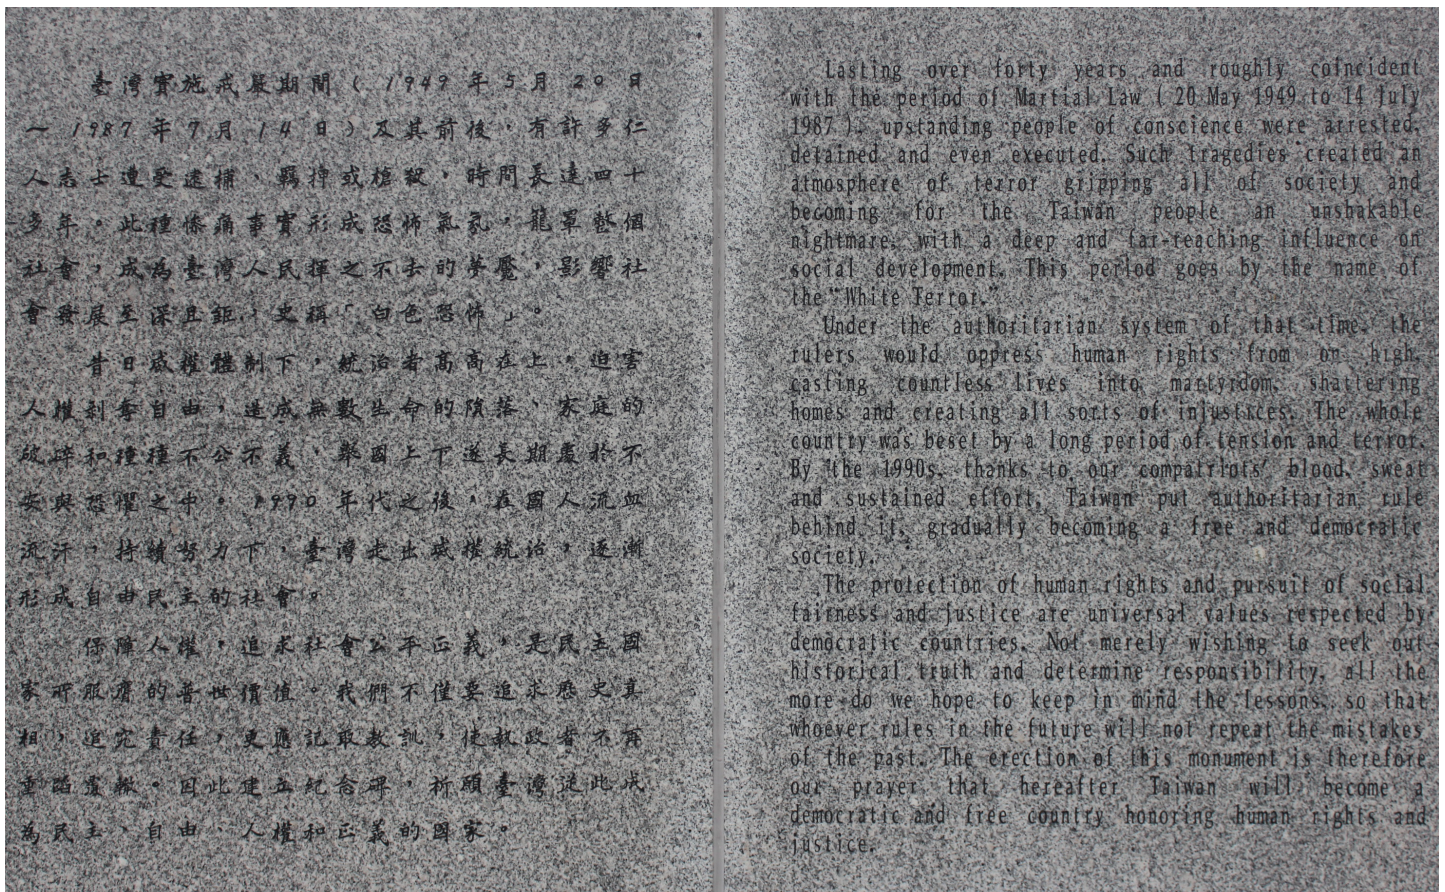 臺灣實施戒嚴期間(1949年5月20日
～1987年7月14日)及其前後，有許多仁
人志士遭受逮捕、羈押或槍殺，時間長達四十
多年。此種慘痛事實形成恐怖氣氛，籠罩整個
社會，成為臺灣人民揮之不去的夢魘，影響社
會發展至深且鉅，史稱「白色恐怖」。
昔日威權體制下，統治者高高在上，迫害
人權剝奪自由，造成無數生命的隕落、家庭的
破碎和種種不公不義，舉國上下遂長期處於不
安與恐懼之中。1990年代之後，在國人流血
流汗，持續努力下，臺灣走出威權統治，逐漸
形成自由民主的社會。
保障人權，追求社會公平正義，是民主國
家所服膺的普世價值。我們不僅要追求歷史真
相，追究責任，更應記取教訓，使執政者不再
重蹈覆轍。因此建立紀念碑，祈願臺灣從此成
為民主、自由、人權和正義的國家。
Lasting over forty years and roughly coincident
with the period of Martial Law ( 20 May 1949 to 14 July
1987 ), upstanding people of conscience were arrested,
detained and even executed. Such tragedies created an
atmosphere of terror gripping all of society and
becoming for the Taiwan people an unshakable
nightmare, with a deep and far-reaching influence on
social development. This period goes by the name of
the "White Terror."
Under the authoritarian system of that time, the
rulers would oppress human rights from on high,
casting countless lives into martyrdom, shattering
homes and creating all sorts of injustices. The whole
country was beset by a long period of tension and terror.
By the 1990s, thanks to our compatriots' blood, sweat
and sustained effort, Taiwan put authoritarian rule
behind it, gradually becoming a free and democratic
society.
The protection of human rights and pursuit of social
fairness and justice are universal values respected by
democratic countries. Not merely wishing to seek out
historical truth and determine responsibility, all the
more do we hope to keep in mind the lessons, so that
whoever rules in the future will not repeat the mistakes
of the past. The erection of this monument is therefore
our prayer that hereafter Taiwan will become a
democratic and free country honoring human rights and
justice.